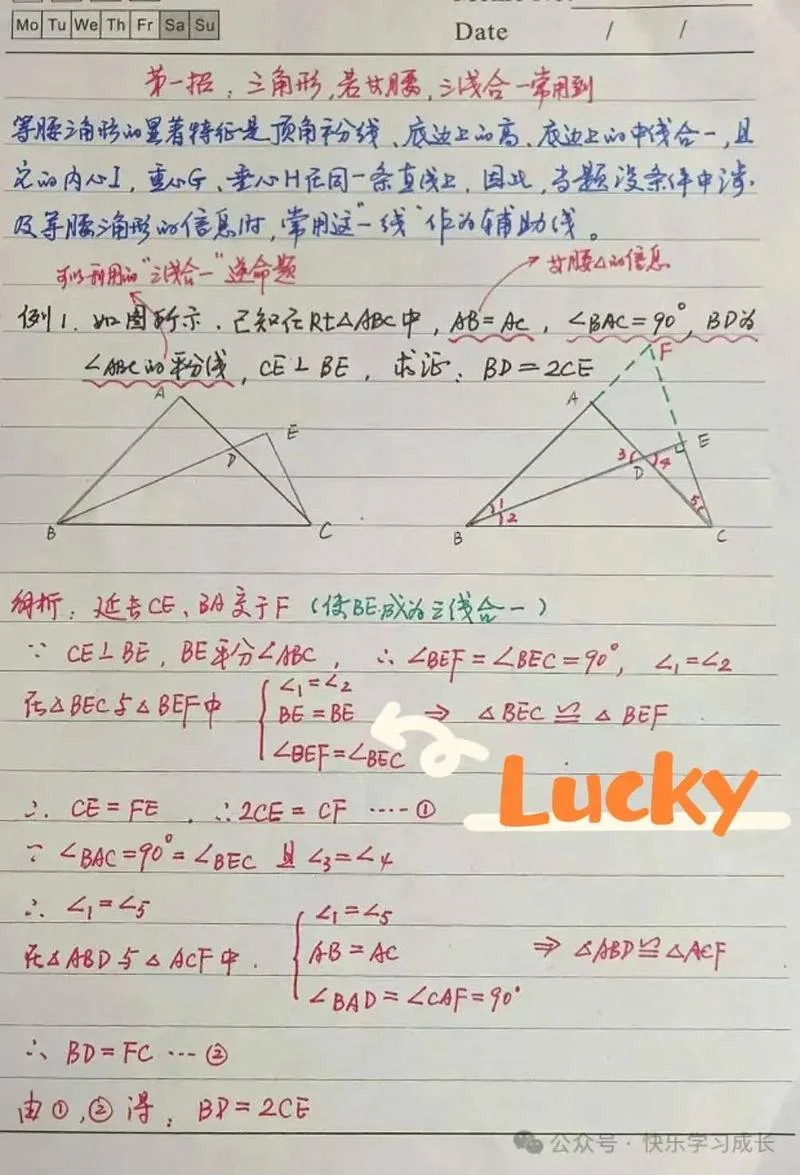 Mo Tu We Th Fr Sa Su
Date / /
第一招：三角形，若甘腰，三线合一常用到
等腰三角形的显著特征是顶角平分线、底边上的高、底边上的中线合一，且
它的内心I，重心G、垂心H在同一条直线上，因此，当题设条件中涉
及等腰三角形的信息时，常用这"一线"作为辅助线。
可以利用的"三线合一"逆命题
廿腰△的信息
例1．如图所示．已知在Rt△ABC中，AB=AC，∠BAC=90°，BD为
∠ABC的平分线，CE⊥BE，求证：BD=2CE
A E D B C
F A E 3 D 4 1 2 5 B C
解析：延长CE、BA交于F（使BE成为三线合一）
∵ CE⊥BE，BE平分∠ABC，∴∠BEF=∠BEC=90°，∠1=∠2
在△BEC与△BEF中 ∠1=∠2
BE=BE ⇒ △BEC≌△BEF
∠BEF=∠BEC
Lucky
∴ CE=FE．∴2CE=CF ……①
∵ ∠BAC=90°=∠BEC 且∠3=∠4
∴ ∠1=∠5
在△ABD与△ACF中． ∠1=∠5
AB=AC ⇒ △ABD≌△ACF
∠BAD=∠CAF=90°
∴ BD=FC …②
由①，②得：BD=2CE
公众号·快乐学习成长